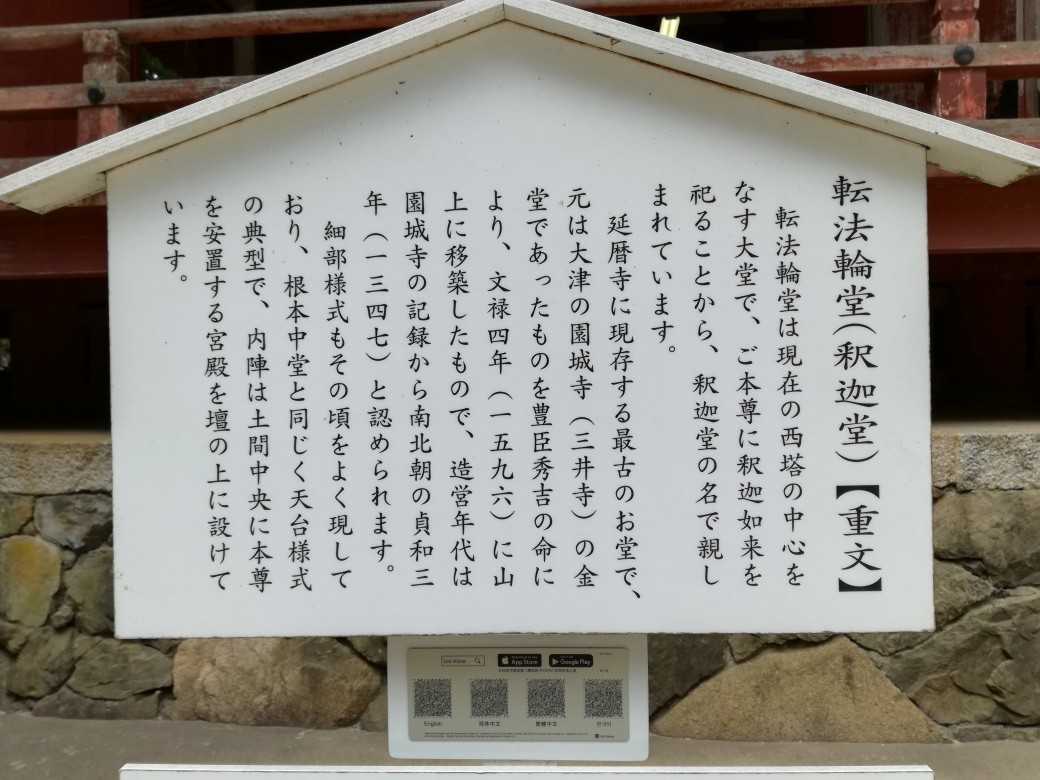 転法輪堂(釈迦堂)【重文】
転法輪堂は現在の西塔の中心を
なす大堂で、ご本尊に釈迦如来を
祀ることから、釈迦堂の名で親し
まれています。
延暦寺に現存する最古のお堂で、
元は大津の園城寺(三井寺)の金
堂であったものを豊臣秀吉の命に
より、文禄四年(一五九六)に山
上に移築したもので、造営年代は
園城寺の記録から南北朝の貞和三
年(一三四七)と認められます。
細部様式もその頃をよく現して
おり、根本中堂と同じく天台様式
の典型で、内陣は土間中央に本尊
を安置する宮殿を壇の上に設けて
います。
App Store
Google Play
English
简体中文
繁體中文
한국어